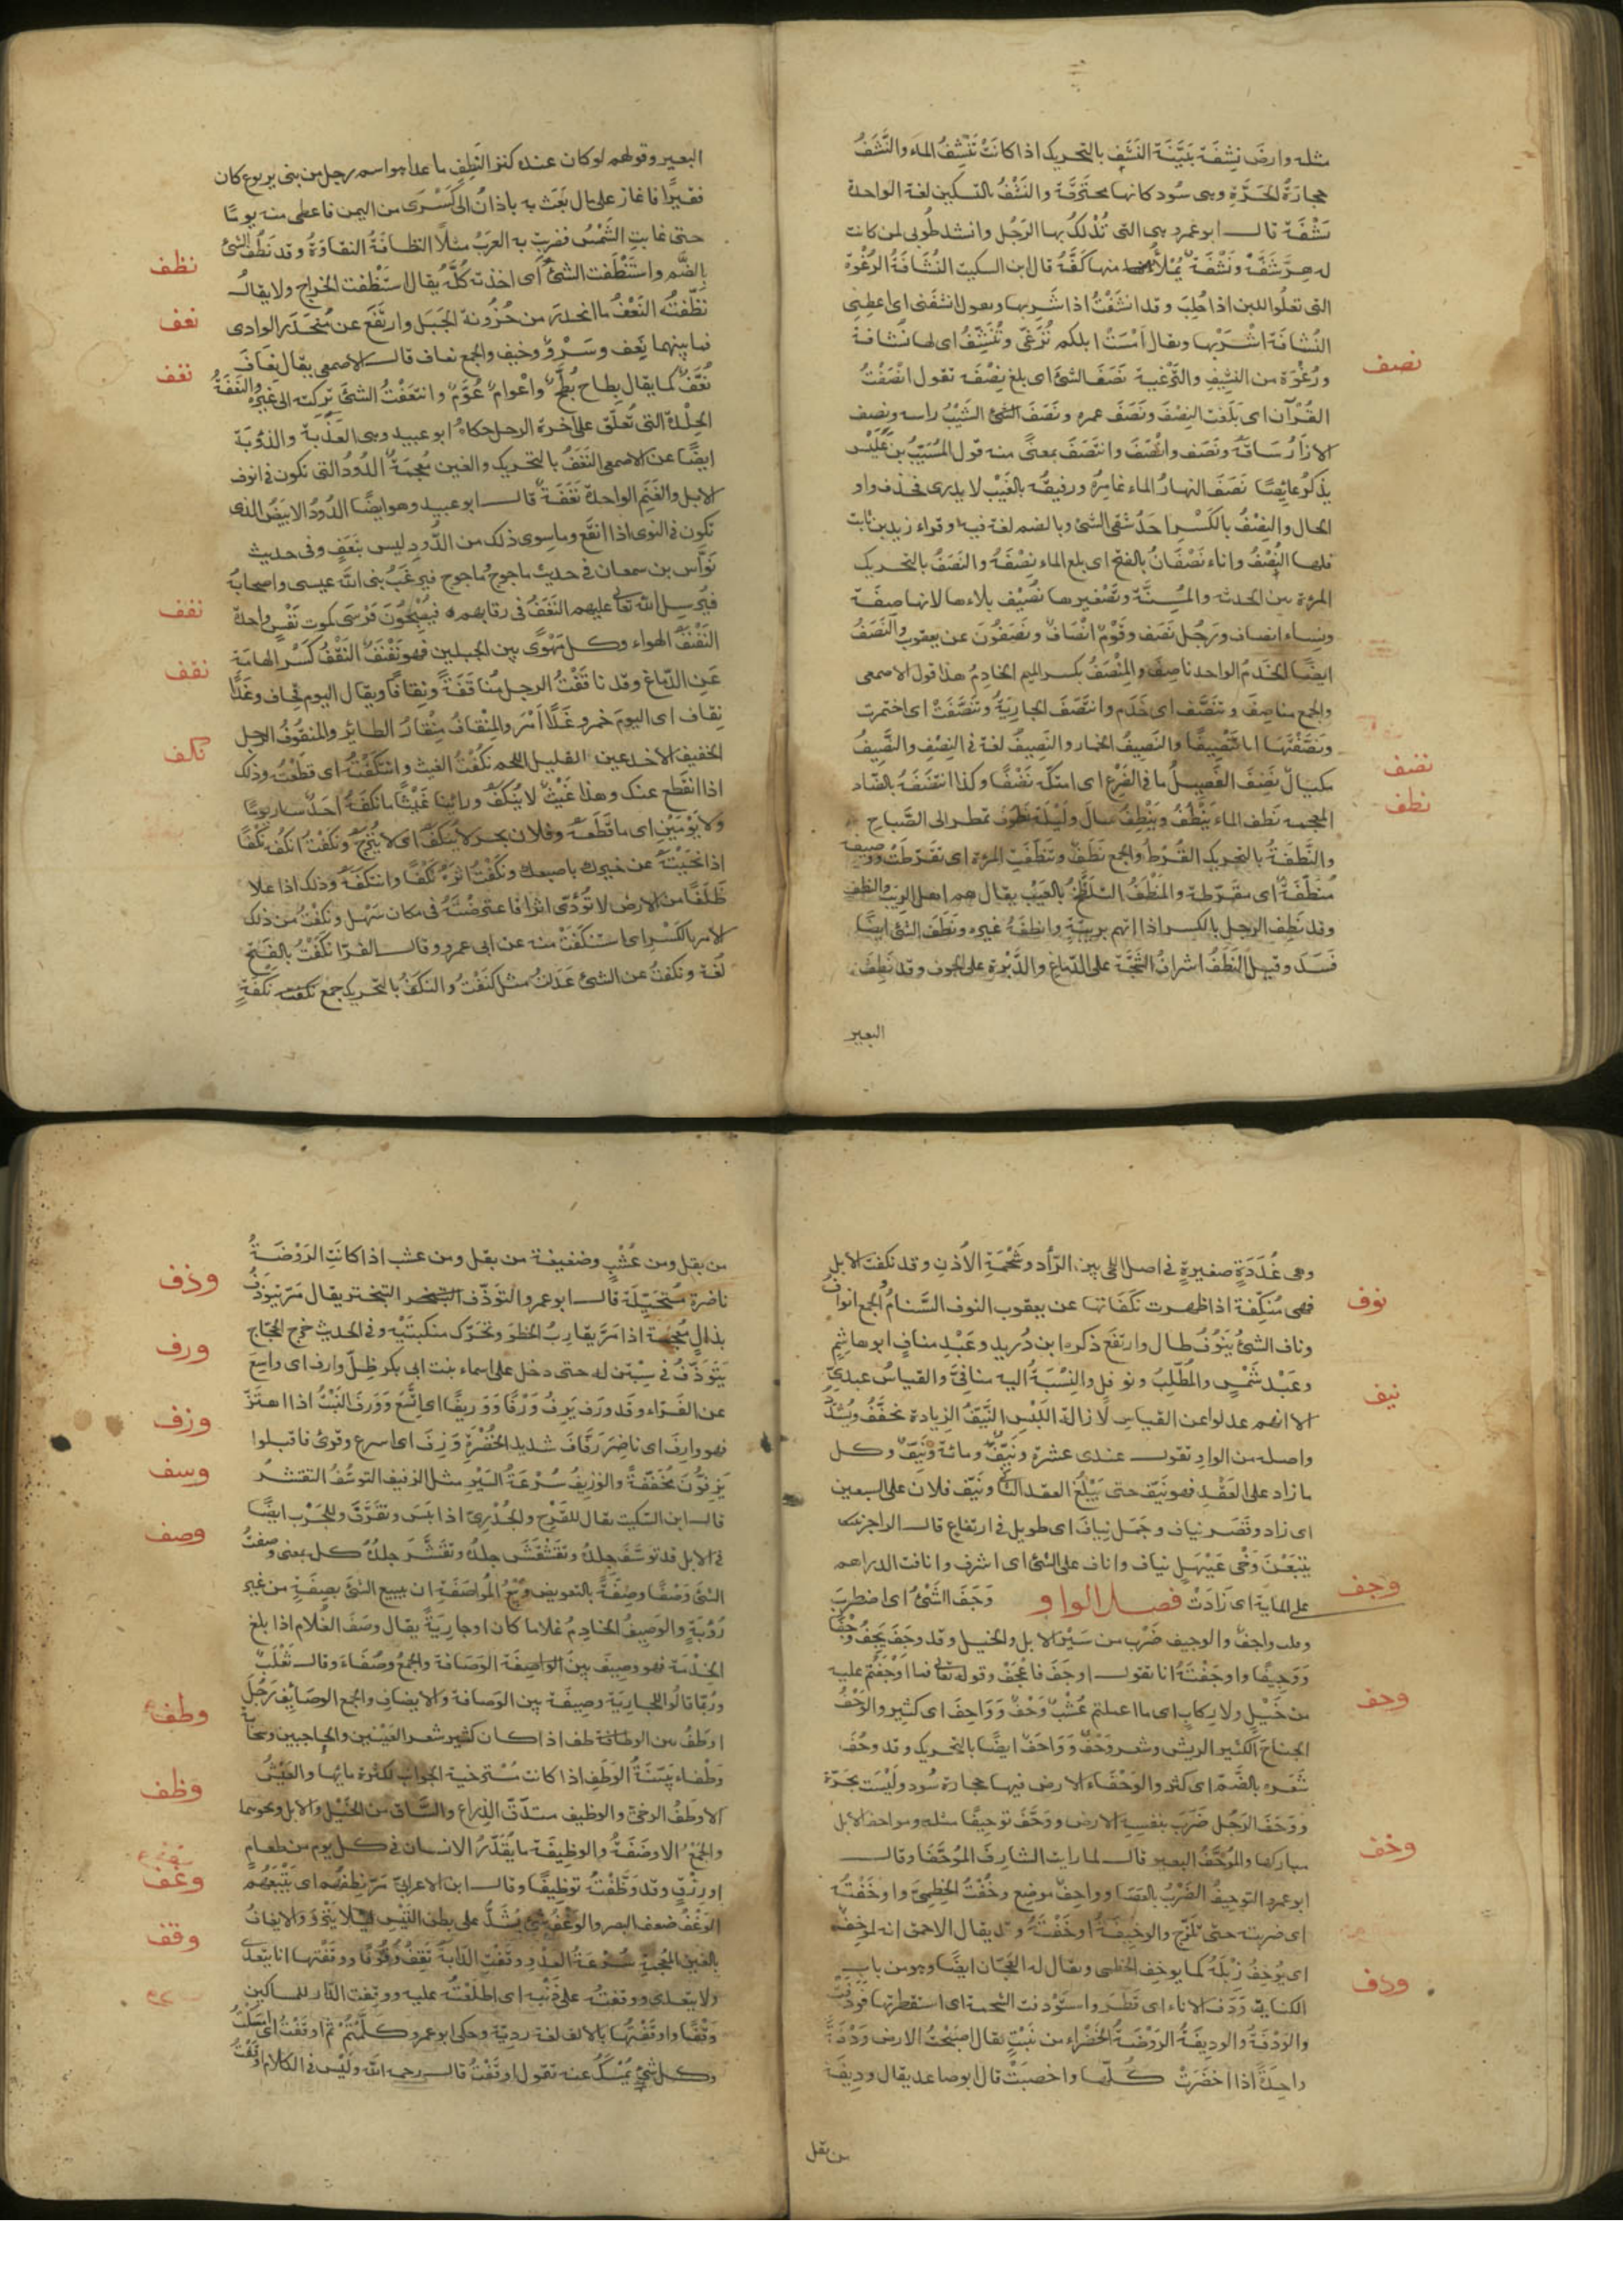 مثله وارضٌ نَشِفَة بَيِّنَة النَشَفِ بالتحريك اذا كانَتْ تَنْشَفُ الماء والنَّشَفُ
حجارَةُ الحَرَّةِ وهى سُود كانها محتَرِقَة والنَشْفُ بالتسكين لغة الواحدة
نَشْفَة قال ابو عمرو هى التى تُدْلَكُ بها الرّجُل وانشد طُوبى لمن كانت
له هِرْشَفَّهْ ونَشْفَة يَمْلأُ منها كَفَّهُ قال ابن السكيت النُشَافَةُ الرُغْوة
التى تعلُوا اللبن اذا حُلِبَ وقد انتَشَفْتُ اذا شَرِبتها ويقول انشفنى اى اعطِنِى
النُشَافَة اشْرَبْها ويقال اَمْسَتْ ابلكم تُرَغّى وتُنَشِّفُ اى لها نُشافة
ورُغْوة من النَشِيفِ والتَرْغية نَصَفَ الشئَ اى بلغ نِصْفَه تقول نَصَفْتُ
نصف
القُرْآن اى بَلَغت النِصْفَ ونَصَفَ عمره ونَصَفَ الشئ الشَيْبُ راسه ونصف
الازارُ سَاقَهُ ونَصَفَ وانْصَفَ وانتَصَفَ بمعنًى منه قول المُسَيّبِ بن عَلَس
يذكرُ غائِصًا نَصَفَ النهارُ الماء غامِرُهُ ورفيقُه بالغَيْب لا يدرى فحذف واو
الحال والنِصْفُ بالكَسْرِ احَدُ شقى الشئ وبالضم لغة فيه وقراء زيد بن ثابت
فلها النُصْفُ واناء نَصْفَانُ بالفتح اى بلغ الماء نِصْفَهُ والنَصَفُ بالتحريك
المرءة بين الحدثة والمُسِنَّة وتَصْغيرها نُصَيْف بلا هاء لانها صِفَة
ونِساء انصاف ورَجُل نَصَف وقَوْمٌ اَنْصَافٌ ونَصَفُونَ عن يعقوب والنَصَفُ
ايضًا الخَدَمُ الواحد ناصِف والمِنْصَفُ بكسر الميم الخادِمُ هذا قول الاصمعى
والجمع مناصِفُ وتنَصَّف اى خَدَم وانتَصَفَ الجارِيَةُ وتَنَصَّفَتْ اى اختمرت
ونَصَّفْتُها انا تَنْصِيفًا والنَصِيفُ الخمار والنَصِيفُ لغة فى النِصْفِ والنَّصِيفُ
مكيالٌ نَضِفَ الفَصِيلُ ما فى الضَرْعِ اى امتَكّه نَضْفًا وكذا انتَضَفَهُ بالضاد
نضف
المعجمة نَطَف الماء يَنْطُفُ ويَنْطِفُ سالَ ولَيْلَة نَطُوف تمطر الى الصَّباحِ
نطف
والنَّطَفَةُ بالتحريك القُرْط والجمع نَطَفٌ وتنَطَّفَتِ المرءة اى تقَرّطَتْ ووَصِيفة
مُنَطَّفَة اى مقَرّطة والنَطَفُ التَلَطُّخُ بالعَيْبِ يقال هم اهل الرِيَبِ والنطف
وقد نَطِفَ الرجل بالكسر اذا اتّهم بريبَةٍ وانطفَهُ غيره ونَطِفَ الشئ ايضًا
فَسَدَ وقيل النَطَفُ اشرافُ الشجَّة على الدّماغ والدَّبْرة على الجوف وقد نَطِفَ
البعير
البعير وقولهم لو كان عنده كنز النَطِف ما عدا هو اسم رجل من بنى يربوع كان
فقيرًا فاغار على مال بَعَث به باذانُ الى كَسْرى من اليمن فاعطى منه يومًا
حتى غابتِ الشَمْسُ فضربَت به العَرَبُ مثلاً النظافَةُ النقاوَةُ وقد نَظُفَ الشئُ
نظف
بالضَّم واسْتَنْظَفت الشئَ اى اخذته كُلَّهُ يُقال استَنْظَفت الخراج ولا يقال
نَظَّفتُه النَعْفُ ما انحَدَرَ من حُزُونة الجَبَل وارتَفَعَ عن مُنحَدَرِ الوادى
نعف
فما بينهما نَعْف وسَرْوٌ وخيف والجمع نعاف قال الاصمعى يقال نعاف
نُعَّفٌ كما يقال بِطاح بُطَّحٌ واعْوام عُوَّمٌ وانتَعَفْتُ الشئَ تركته الى غَيْره والنَعَفَةُ
نغف
الجِلْدة التى تُعلّق على آخرة الرحل حكاه ابو عبيد وهى العَذَبة والذُوابَة
ايضًا عن الاصمعى النَغَفُ بالتحريك والغين مُعجمة الدُودُ التى تكون فى انوف
الابل والغَنَم الواحدة نَغَفَة قال ابو عبيد وهو ايضًا الدُودُ الابيَضُ الذى
تكون فى النوى اذا انقَع وما سوى ذلك من الدُودِ ليس بنَغَفٍ وفى حديث
نَوَّاس بن سمعان فى حديث ياجوج وماجوج فيرغَبُ نبى اللّه عيسى واصحابُه
فيُرسِل اللّه تعالى عليهم النَغَفَ فى رقابهم فيُصْبِحُونَ فَرْسَى كموت نَفْس واحدة
النَفْنَفُ الهواء وكل مَهْوًى بين الجبلين فهو نَفْنَفٌ النَقْفُ كَسْر الهامَة
نفف
عَنِ الدّماغِ وقد ناقَفْتُ الرجل مُناقَفَة ونِقافًا ويقال اليوم قِحاف وغَدًا
نقف
نِقاف اى اليومَ خمر وغَدًا اَمْر والمِنْقافُ مِنْقارُ الطائر والمنقُوفُ الرجل
الخفيف الاخدعين القليل اللحم نكَفْتُ الغيث وانتَكَفْتُه اى قطَعْتُه وذلك
نكف
اذا انقَطع عنك وهذا غَيْثٌ لا يُنكَفُ ورائنا غَيْثًا ما نكَفَهُ اَحَدٌ سار يومًا
ولا يَوْمَيْن اى ما قَطَعه وفلان بحر لا يُنكَفُ اى لا يُنزَحُ ونكَفْتُ انكُف نَكْفًا
اذا نحَّيْتَه عن خدِك باصبعك ونكَفْتُ اثَرَهُ نَكْفًا وانتكَفْتُه وذلك اذا علا
ظَلَفًا من الارض لا تُودّى اثرًا فاعتَرضتَهُ فى مكان سَهْل ونكِفْتُ من ذلك
الامر بالكَسْرِ اى استَنْكَفْتُ منه عن ابى عمرو وقال الفرّا نَكَفْتُ بالفَتح
لُغة ونكَفتُ عن الشئ عَدَلتُ مثل كنَفْتُ والنَكَفُ بالتحريك جمع نَكَفَةٍ
وهى غُدَدَةٍ صغيرةٍ فى اصل اللحى بين الرَّأد وشَحْمَةِ الاُذنِ وقد نكِفَت الابل
فهى مُنَكِّفة اذا ظهرت نكَفاتها عن يعقوب النوف السَّنامُ والجمع انوافُ
نوف
وناف الشئُ يَنُوفُ طال وارتفَع ذكره ابن دُريد وعَبْد منافٍ ابو هاشِم
وعَبْد شَمْسٍ والمُطّلِبُ ونوفَل والنِسْبَةُ اليه منافِىّ والقياسُ عبدِىّ
الا انهم عدلوا عن القياس لازالة اللَبْسِ النَّيِّفُ الزيادة تخفّفُ وتُشَدَّدُ
نيف
واصله من الواو تقول عندى عشرة ونَيِّفٌ ومائة ونَيِّفٌ وكل
ما زاد على العَقْدِ فهو نَيِّف حتى يَبْلُغَ العقد الثانى ونَيَّفَ فلان على السبعين
اى زاد وقَصْر نياف وجَمَل نِياف اى طويل فى ارتفاع قال الراجز
يتبَعْنَ وَخْى عَيْهَلٍ نياف واناف على الشئ اى اشرف وانافت الدراهم
على المايةِ اى زَادَتْ فصل الواو وَجَفَ الشَئُ اى اضطرَبَ
وجف
وقلب واجفٌ والوجيف ضَرْب من سَيْر الابل والخيل وقد وجَفَ يَجِفُ وَجْفًا
وَوَجِيفًا واوجَفْتُهُ انا يقول اوجَفَ فاعْجَفَ وقوله تعالى فما اَوْجَفْتُم عليه
من خَيْلٍ ولا رِكابٍ اى ما اعملتم عُشْبٌ وَحْفٌ وَوَاحِفٌ اى كثير والوَحْفُ
وحف
الجناحَ الكثير الريش وشعر وَحْفٌ وَوَحَفٌ ايضًا بالتحريك وقد وحُفَ
شَعره بالضَّم اى كثر والوَحْفَاء الارض فيها حجارة سُود ولَيْسَت بحَرّة
ووَحَفَ الرَجُل ضَرَبَ بنفسِه الارض ووَحَّفَ توحيفًا مثله ومواحف الابل
مباركها والمُوَحَّفُ البعير قال لما رايت الشارِفَ المُوَحَّفَا وقال
وخف
ابو عمرو التوحيفُ الضَرْبُ بالعَصَا وواحِفٌ موضِع وخَفْتُ الخِطمِىَّ واوخَفْتُه
اى ضربته حتى تلَزَّج والوخِيفَةُ اوخَفْتَهُ وقد يقال الاحمق انه لمُوخِفٌ
اى يُوخِفُ زِبْلَهُ كما يوخف الخطمى ويقال له العَجَّان ايضًا وهو من باب
الكناية وَدَف الاناء اى قَطَر واستَوْدفت الشحمة اى استقطرتها فوَدَفَت
ودف
والوَدْفَةُ والوديفَةُ الرَوْضَةُ الخَضْراء من نَبْتٍ يقال اصبَحتِ الارض وَدْفَةً
واحِدَةً اذا اخضَرَتْ كُلّها واخصَبَتْ قال ابو صاعد يقال ودِيفَة
من بقل
من بقل ومن عُشْبٍ وضغيغة من بقل ومن عشب اذا كانَتِ الرَوْضَةُ
ناضرة مُتخَيّلَة قال ابو عمرو التَوَذُّف التبختر يقال مَرّ يتَوَذَّفُ
وذف
بذالٍ مُعجَمة اذا مَرَّ يقارِبُ الخَطو وتحَرّك منكبَيْه وفى الحديث خرج الحجّاج
يَتَوَذَّفُ فى سِبْتَين له حتى دخل على اسماء بنت ابى بكر ظِلّ وارِف اى واسِعَ
ورف
عن الفَرّاء وقد ورَف يَرِفُ وَرْفًا ووَرِيفًا اى اتّسَعَ ووَرَفَ النَبْتُ اذا اهتَزّ
فهو وارِفَ اى ناضِرَ رَفَّافَ شديد الخُضْرَةِ وَزَفَ اى اسرع وقُرِئَ فاقبلوا
وزف
يَزِفُونَ مُخَفّفَةً والوَزِيفُ سُرْعَةُ السَيْرِ مثل الزفيف التوسُّفُ التقشر
وسف
قال ابن السكيت يقال للقَرْحِ والجُدَرِىّ اذا يَبَسَ وتقَرَّفَ وللجَرَب ايضًا
فى الابل قد توسَّفَ جِلدُه وتقَشْقَشَ جلدُه وتقَشَّرَ جلدُهُ كله بمعنى وصفتُ
وصف
الشئ وَصْفًا وصِفَةً بالتعويض وبَيْعُ المُواصَفَة ان يبيع الشئَ بصِفَةٍ من غير
رُؤيَةٍ والوَصِيفُ الخادِمُ غلاما كان او جارِيَةً يقال وصُفَ الغُلام اذا بلغ
الخِدْمَة فهو وصِيفٌ بينَ الوَصَافة والجمعُ وصُفَاء وقال ثَعْلَبٌ
ورُبّما قالُوا للجارِيَة وصِيفَة بين الوَصافة والايصاف والجمع الوصَائِف رَجُل
اوطَفُ بين الوطف اذا كان كثير شعر العَيْنَين والحاجبين وسَحابة
وطف
وَطْفاء بَيّنَةُ الوَطَفِ اذا كانت مُسْتَرخية الجوانب لكثرة مايها والعَيْشُ
الاوطَفُ الرَخىّ والوظيف مستدَقّ الذِراع والسَّاق من الخَيْل والابل ونحوهما
وظف
والجَمْعُ الاوظِفَةُ والوظِيفَة ما يُقَدّرُ الانسان فى كل يوم من طعام
او رزْقٍ وقد وَظَّفتُهُ توظيفًا وقال ابن الاعرابىّ مَرّ يظِفُهُم اى يَتْبَعُهُم
وغف
الوَغْفُ ضعف البصر والوَغْفُ شئ يُشَدُّ على بطن التَيْسِ ليلا يَنْزُوَ والايغافُ
بالغين المُعجمة سُرْعَةُ العَدْوِ ووقَفَتِ الدّابَة تَقِفُ وُقُوفًا ووقَفْتها انا يتعدّى
وقف
ولا يتعدى ووقفتُه على ذَنْبِه اى اطلَعْتُه عليه ووقِفت الدّار للمساكين
وَقْفًا واوقَفْتُها بالالف لغة رديّة وحكى ابو عمرو كلَّمتُهُم ثم اوقَفْتُ اى اَسكَتُّ
وكل شئٍ تمْسَكُ عنه تقول اوقَفْتُ قال رحمه اللّه ولَيْس فى الكلام اوقَفْتُ